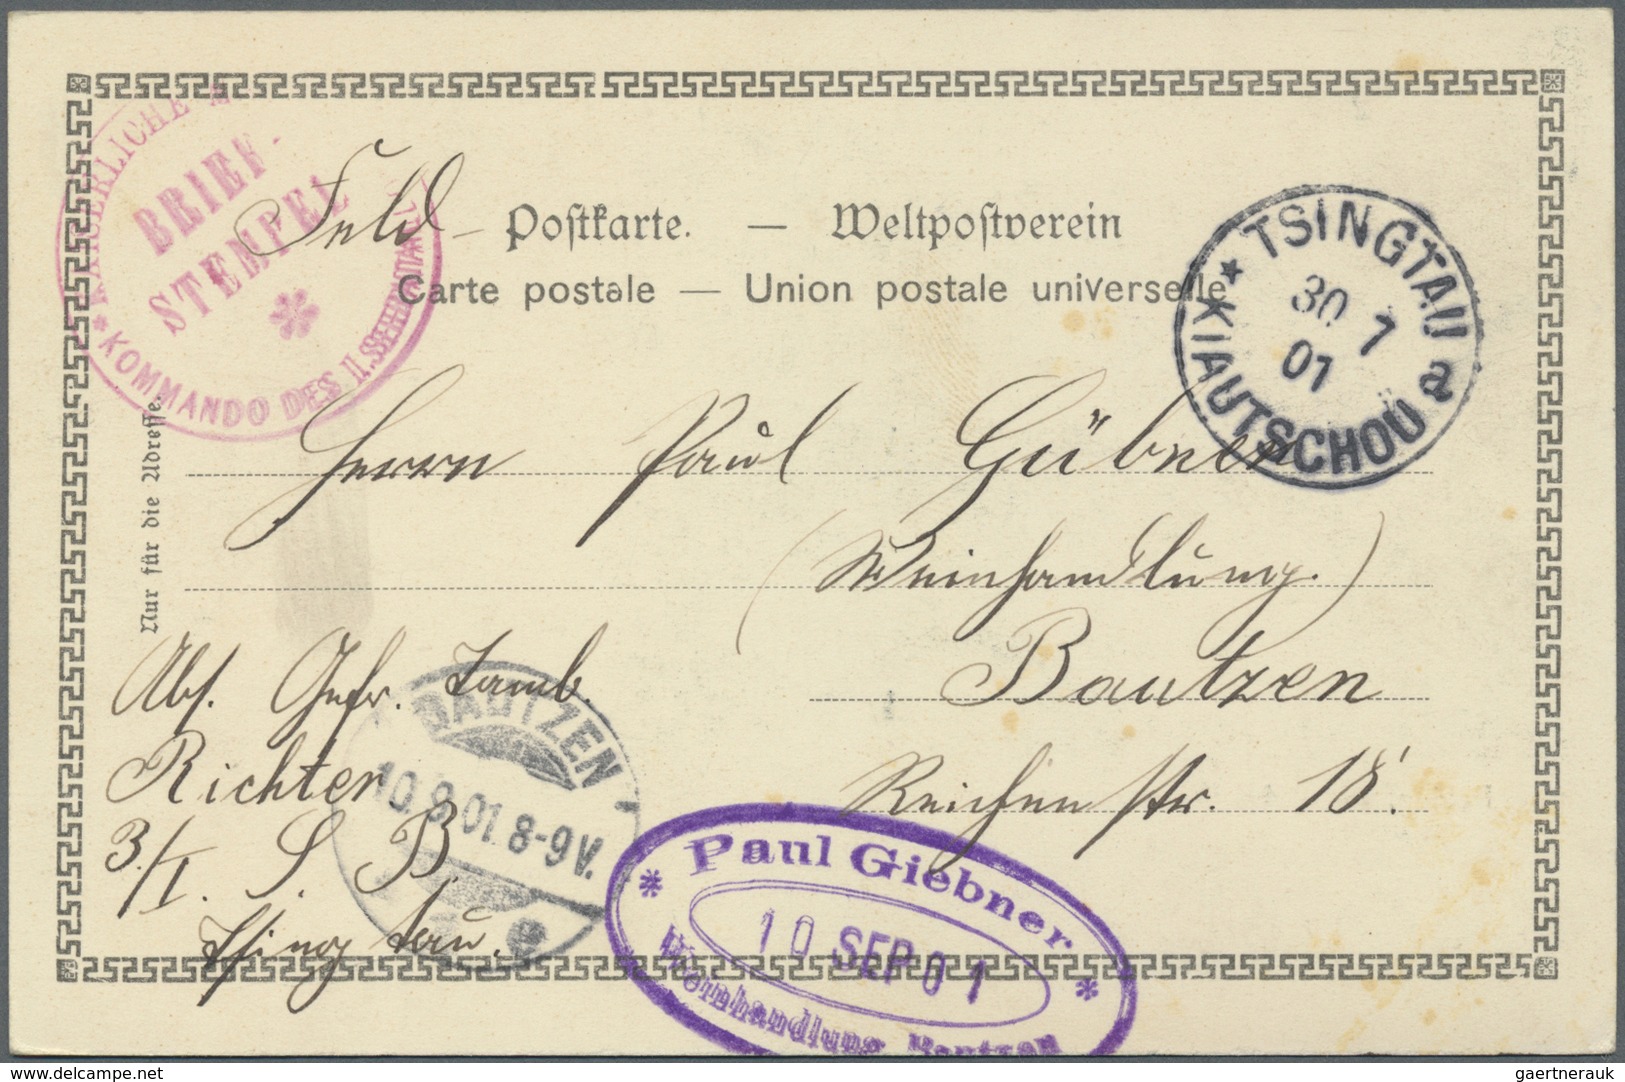 KAISERLICHE
BRIEF-
STEMPEL
KOMMANDO DES II. SEEBATAILL
Feld - Postkarte. — Weltpostverein
Carte postale — Union postale universelle
TSINGTAU
30 7
01
a
KIAUTSCHOU
Nur für die Adresse.
Herrn Paul Gübner
(Weinhandlung.)
Bautzen
Reichenstr. 18.
Abs. Gefr. Tamb.
Richter
3./I. S. B.
Tsingtau.
BAUTZEN
10.9.01. 8-9V.
Paul Giebner
10 SEP 01
Weinhandlung Bautzen
delcampe.net
gaertnerauk